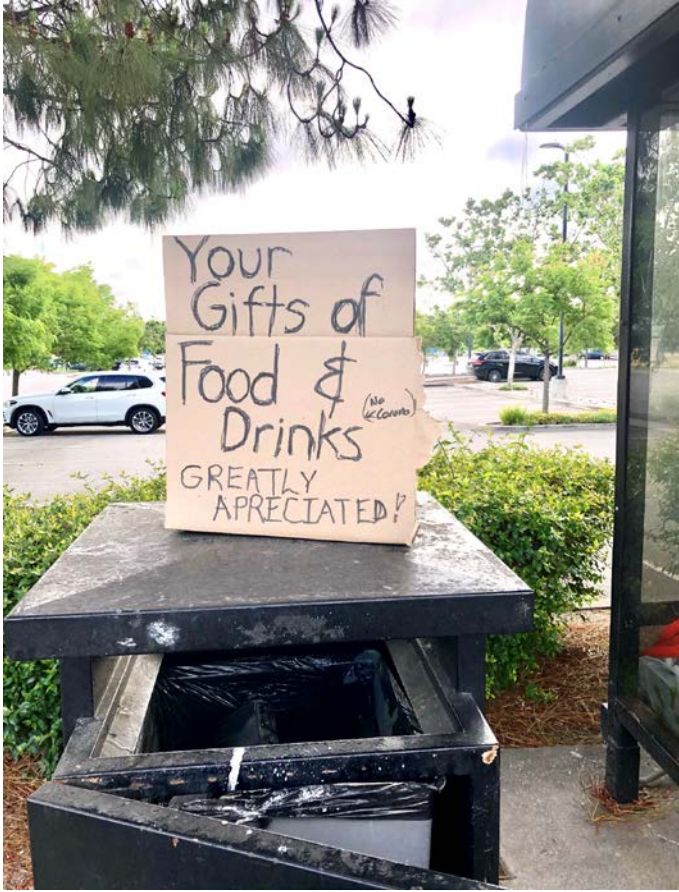 Your
Gifts of
Food &
Drinks
(No
GREATLY
APRECIATED!